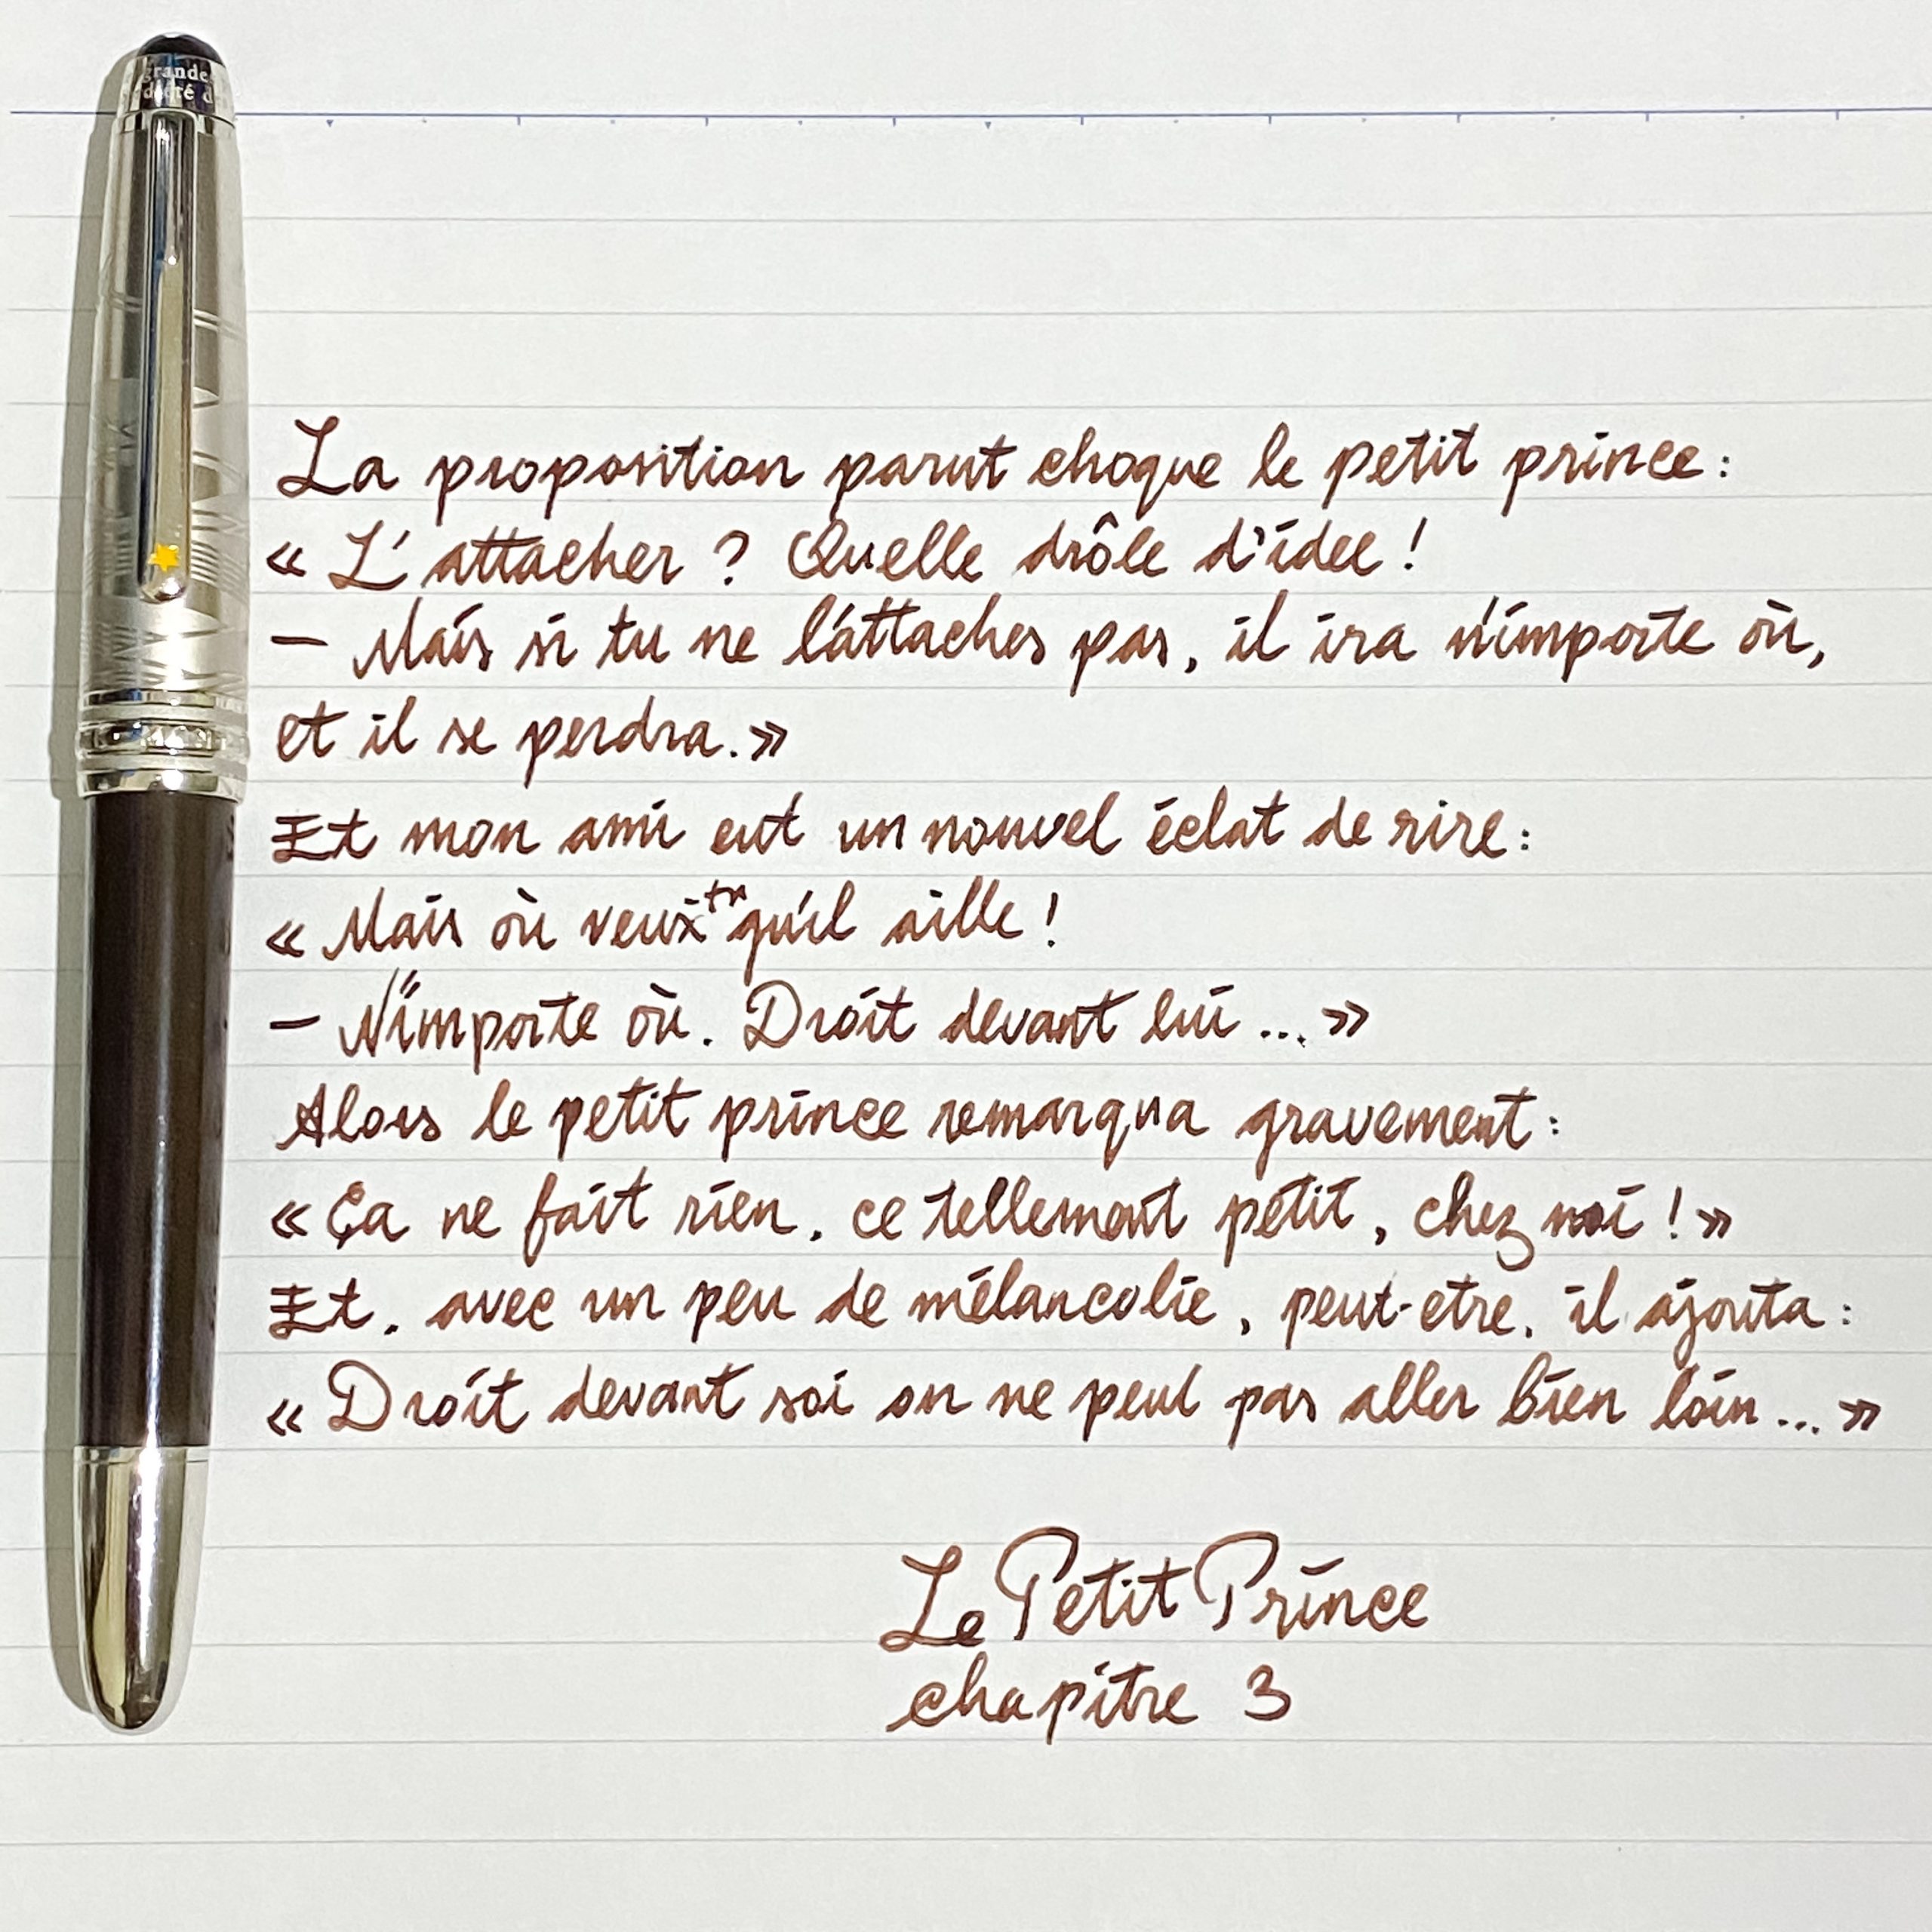 grande
dré d
La proposition parut choque le petit prince :
« L'attacher ? Quelle drôle d'idee !
— Mais si tu ne l'attaches pas, il ira n'importe où,
et il se perdra. »
Et mon ami eut un nouvel éclat de rire :
« Mais où veux tu qu'il aille !
— N'importe où. Droit devant lui ... »
Alors le petit prince remarqua gravement :
« Ça ne fait rien, ce tellement petit, chez moi ! »
Et, avec un peu de mélancolie, peut-etre, il ajouta :
« Droit devant soi on ne peut pas aller bien loin ... »
Le Petit Prince
chapitre 3